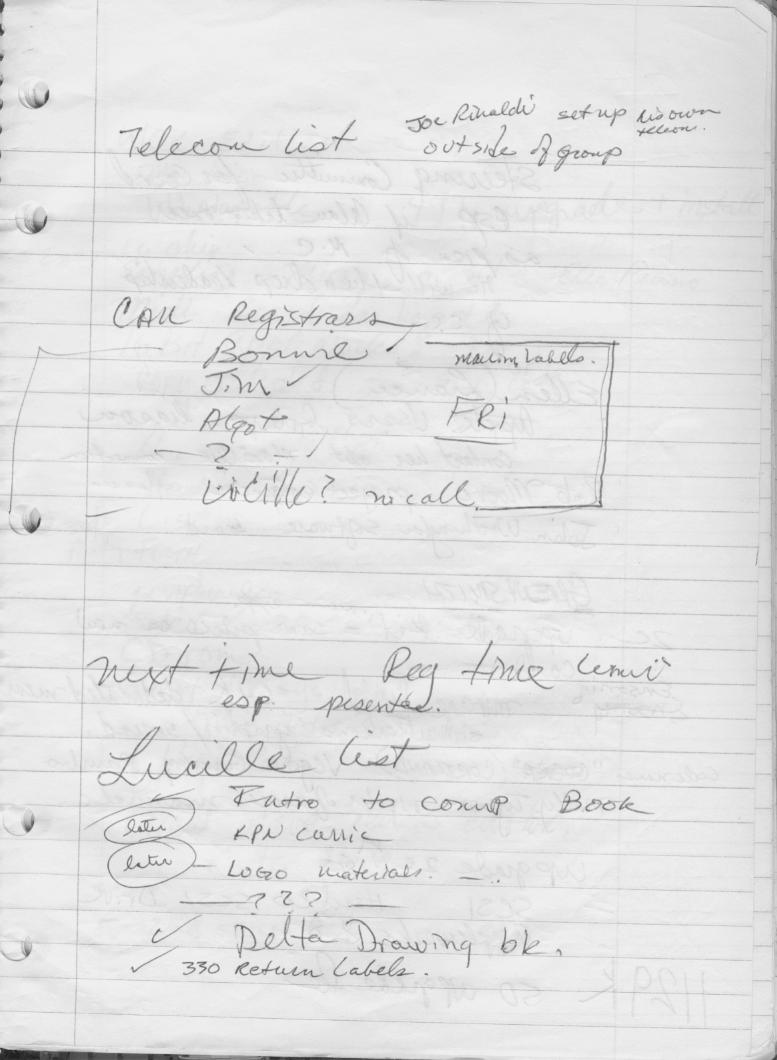 Joe Rinaldi set up his own
Telecom list
outside of group telecon.
Call Registrars
Bonnie
mailing Labels.
Jim
Algot
FRI
— ? —
Lucille? no call
next time Reg time
esp.
Lucille list
Intro to comp Book
later KPN
later – LOGO materials.
— ? ? ? —
Delta Drawing bk.
330 Return Labels.